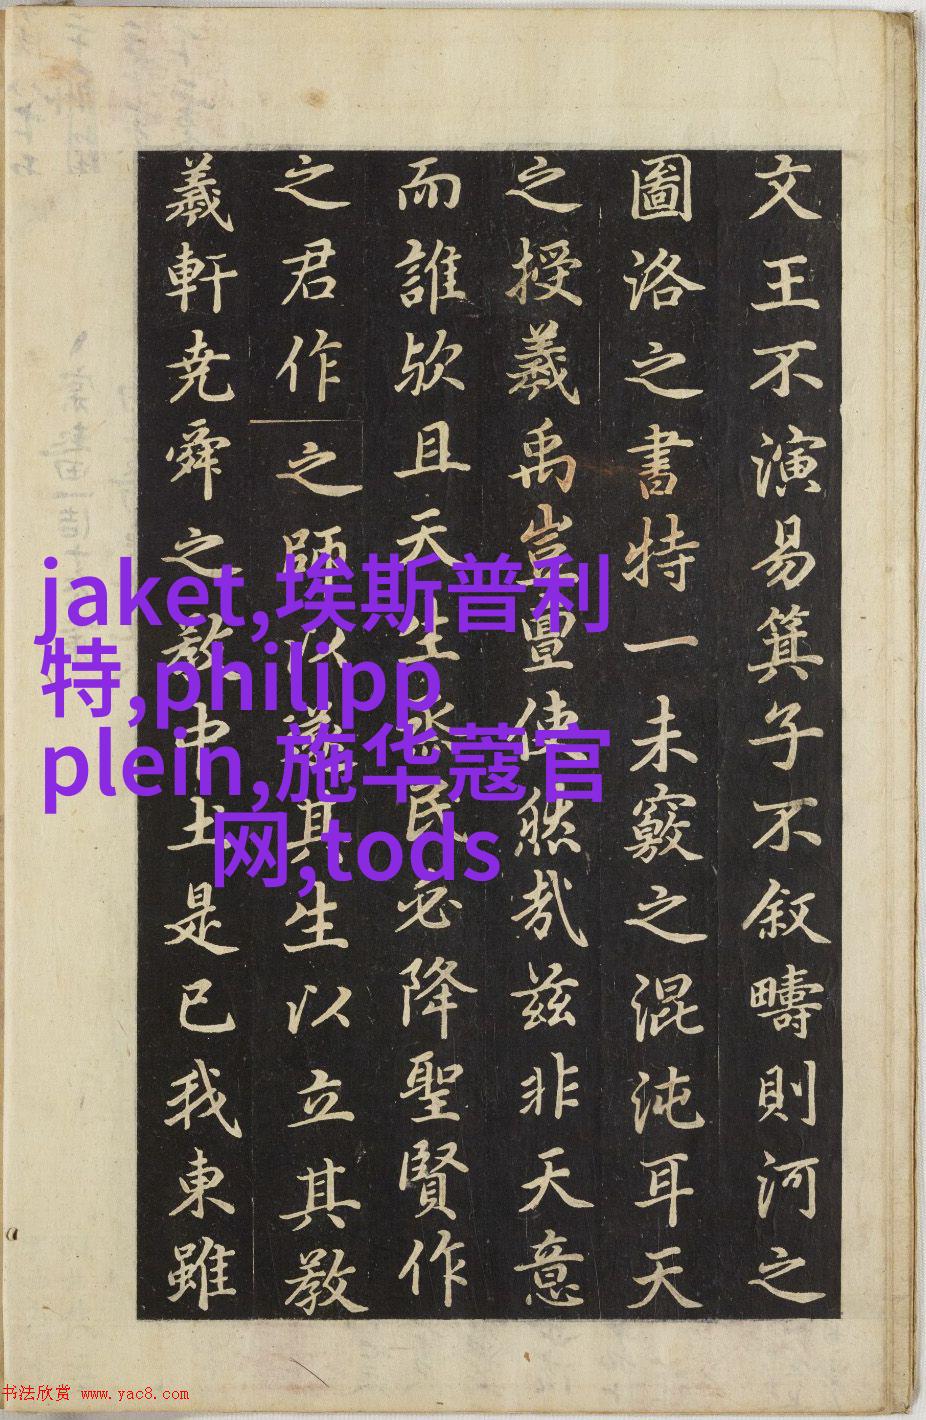 文王不演易箕子不叙疇則河之
圖洛之書特一未竅之混沌耳天
之授羲禹豈亶使然哉兹非天意
而誰欤且天生烝民必降聖賢作
之君作之師以其生以立其教
羲軒尭舜之教中土是已我東雖
jaket,埃斯普利
特,philipp
plein,施华蔻官
网,tods
书法欣赏 www.yac8.com